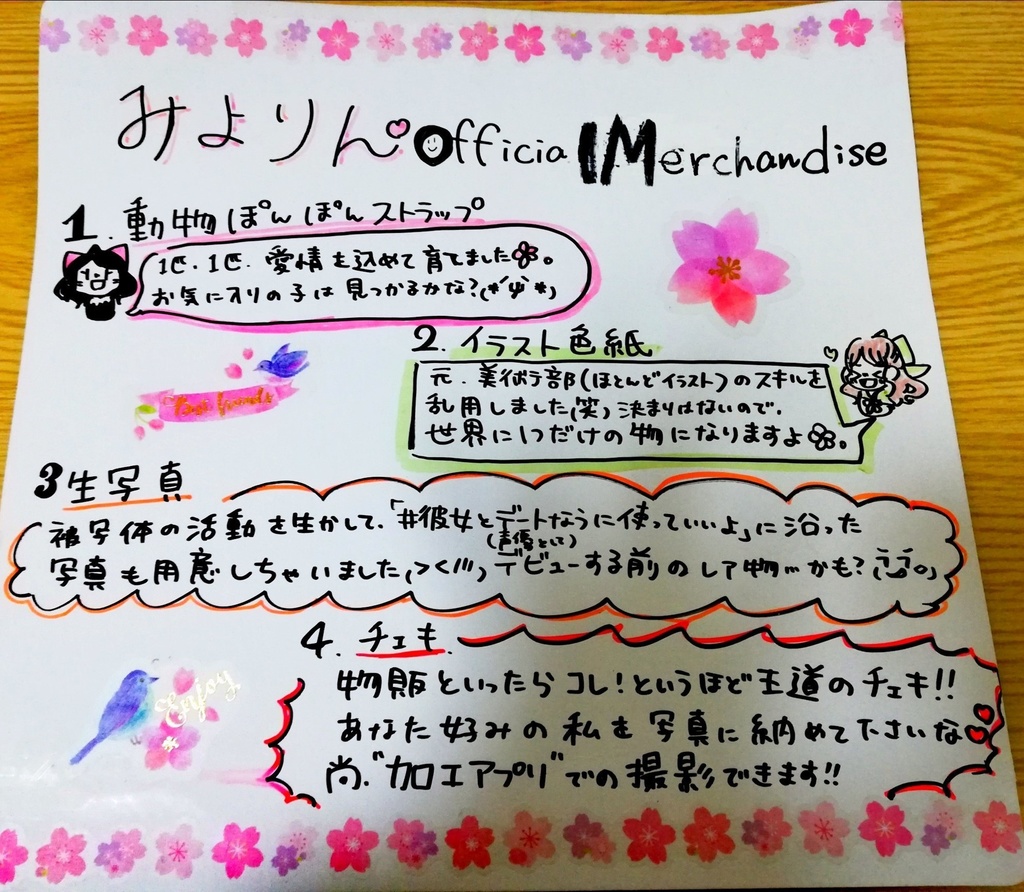 みよりん Official Merchandise
1. 動物ぽんぽんストラップ
1匹・1匹、愛情を込めて育てました。
お気に入りの子は見つかるかな?(*´ψ`*)
2. イラスト色紙
元・美術部(ほとんどイラスト)のスキルを
乱用しました(笑)決まりはないので、
世界に1つだけの物になりますよ。
Best friends
3 生写真
被写体の活動を生かして、「#彼女とデートなうに使っていいよ」に沿った
(声優として)
写真も用意しちゃいました(>く///)デビューする前のレア物…かも?
4. チェキ
物販といったらコレ!というほど王道のチェキ!!
あなた好みの私を写真に納めて下さいな
尚、"加工アプリ"での撮影できます!!
Enjoy